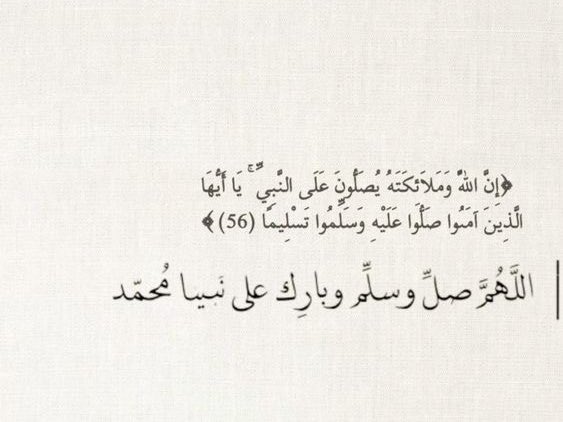 ﴿إِنَّ اللَّهَ وَمَلَائِكَتَهُ يُصَلُّونَ عَلَى النَّبِيِّ ۚ يَا أَيُّهَا
الَّذِينَ آمَنُوا صَلُّوا عَلَيْهِ وَسَلِّمُوا تَسْلِيمًا (56)﴾
اللَّهُمَّ صلِّ وسلِّم وبارِك على نَبينا مُحمّد